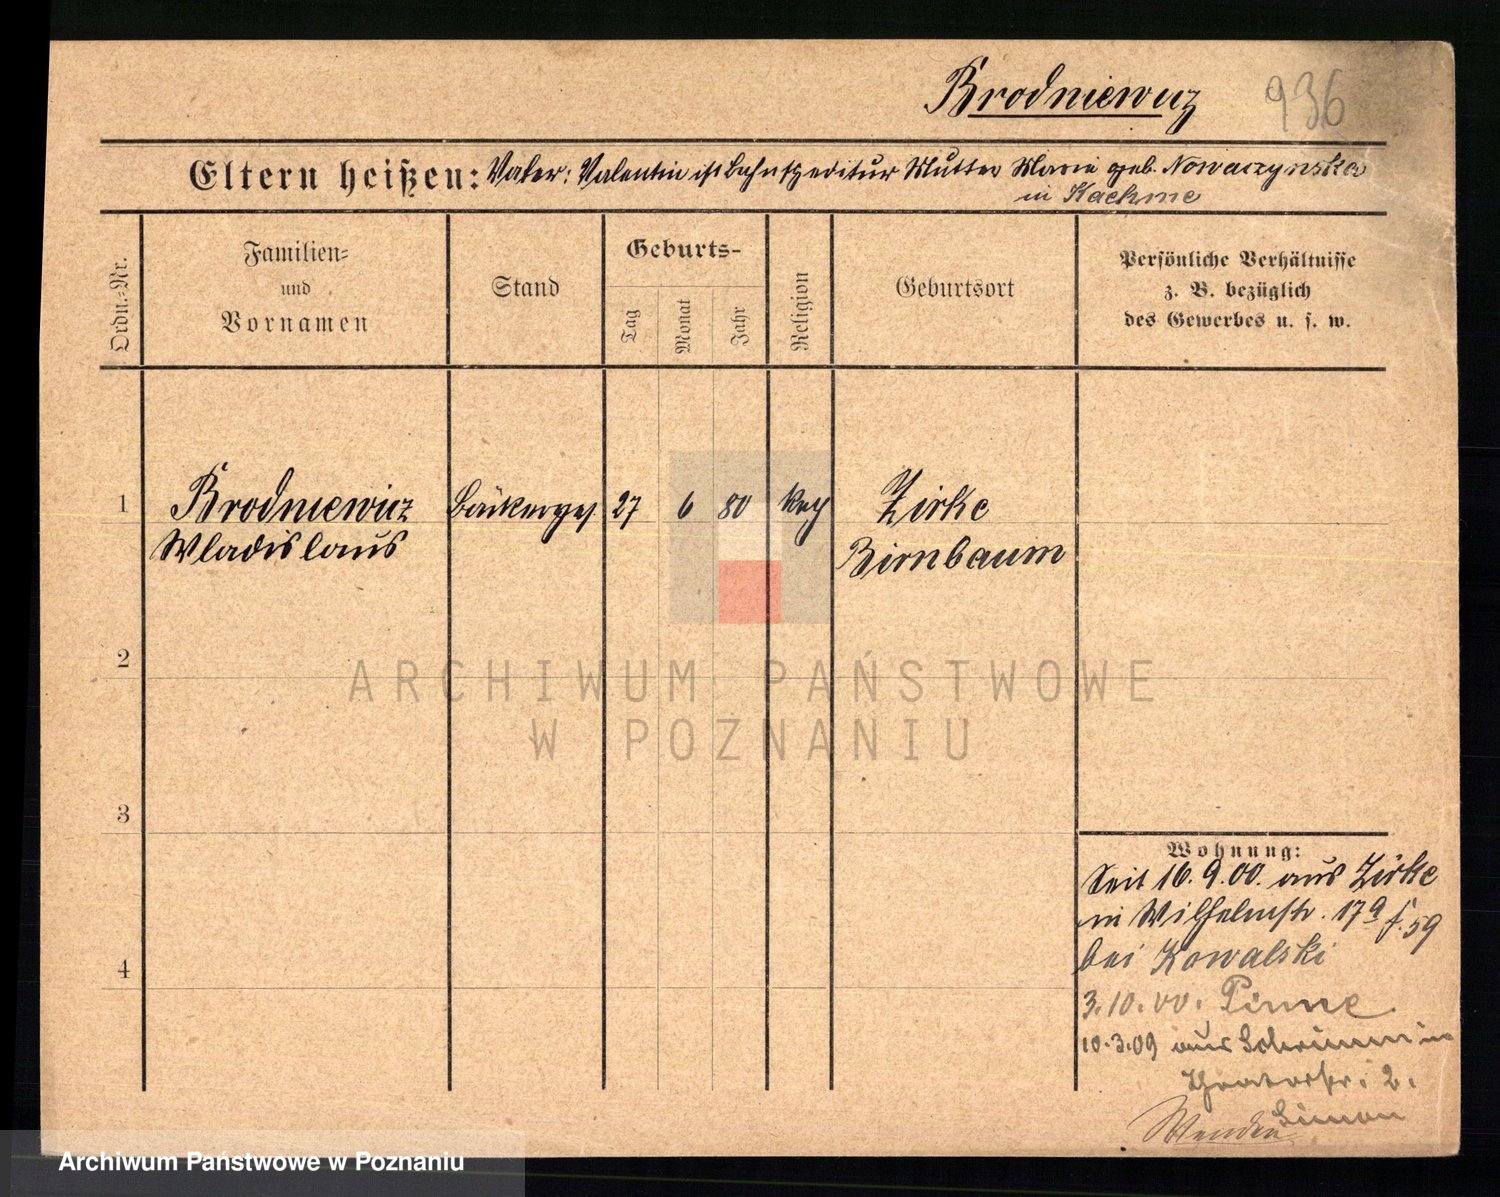 Brodniewicz 936
Eltern heißen: Vater: Valentin ist Bahnspediteur Mutter Marie geb. Nowaczynska
in Kaehme
Ordn.-Nr.
Familien-
und
Vornamen
Stand
Geburts-
Tag
Monat
Jahr
Religion
Geburtsort
Persönliche Verhältnisse
z. B. bezüglich
des Gewerbes u. s. w.
1 Brodniewicz Bäckerges 27 6 80 kath Zirke
Wladislaus Birnbaum
2
3
4
Wohnung:
Seit 16.9.00. aus Zirke
in Wilhelmstr. 17a f. 59
bei Kowalski
3.10.00. Pinne
10.3.09 aus Schrimm in
2.
Simon
Wenden
ARCHIWUM PAŃSTWOWE
W POZNANIU
Archiwum Państwowe w Poznaniu